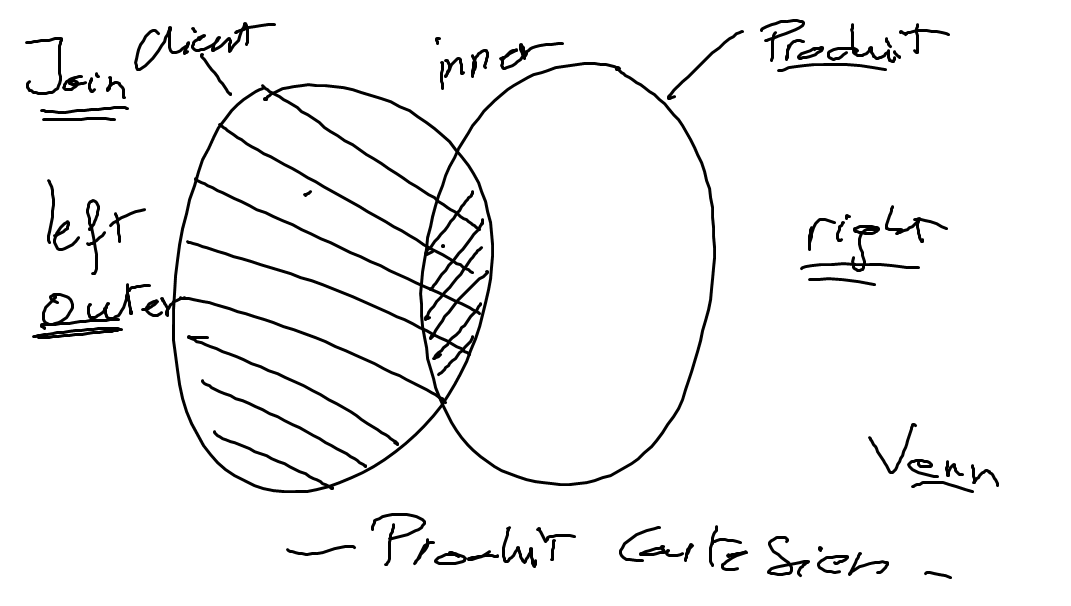 Join
Client
inner
Produit
left
outer
right
Venn
— Produit Cartesien –